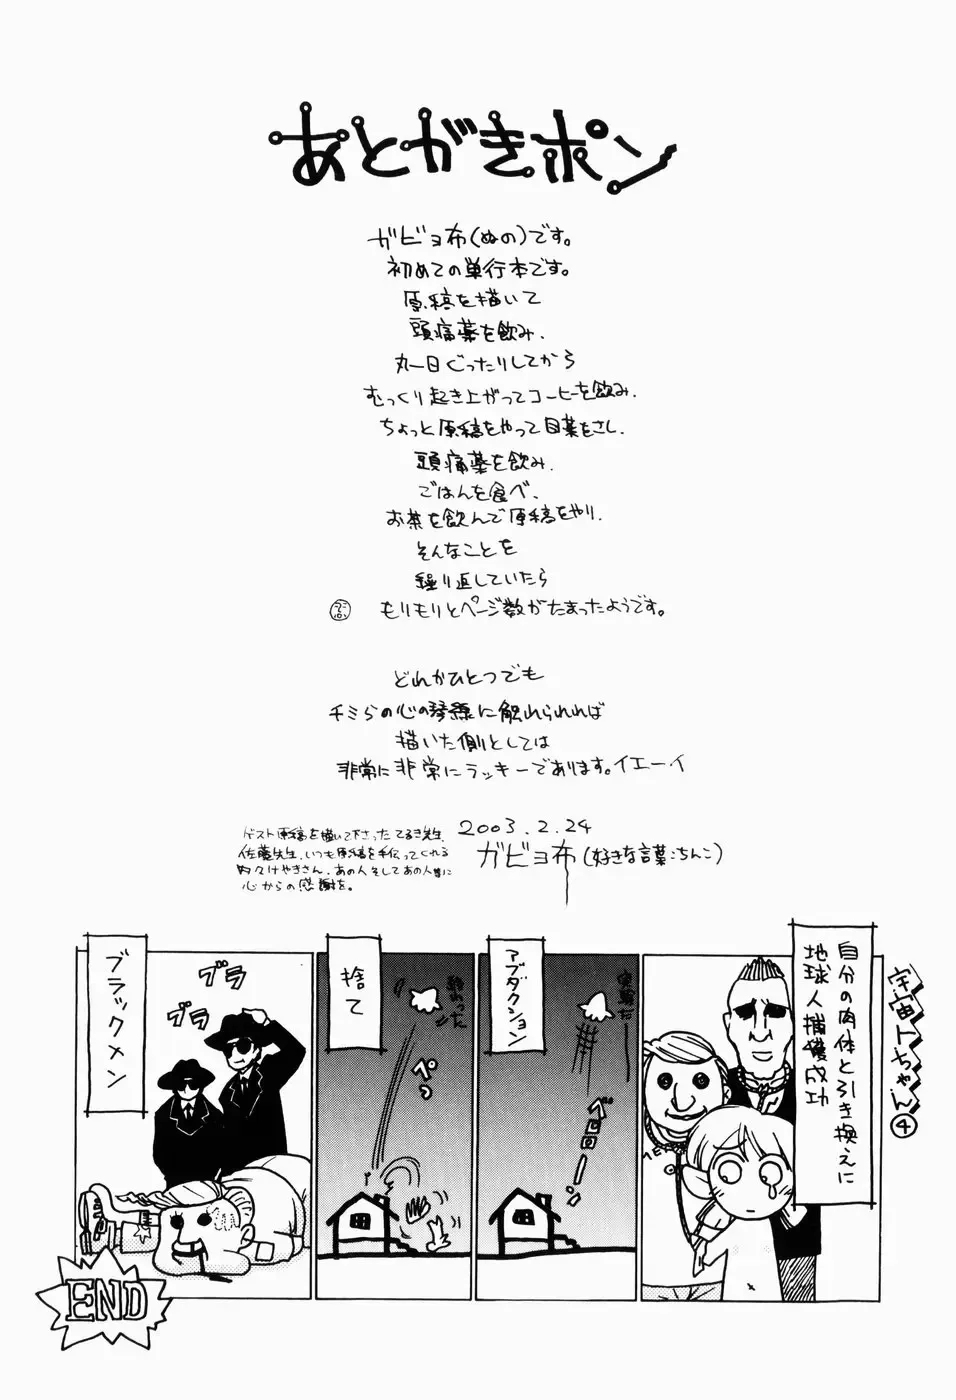 あとがきポン
ガビョ布(ぬの)です。
初めての単行本です。
原稿を描いて
頭痛薬を飲み、
丸一日ぐったりしてから
むっくり起き上がってコーヒーを飲み、
ちょっと原稿をやって目薬をさし、
頭痛薬を飲み、
ごはんを食べ、
お茶を飲んで原稿をやり、
そんなことを
繰り返していたら
もりもりとページ数がたまったようです。
どれかひとつでも
チミらの心の琴線に触れられれば
描いた側としては
非常に非常にラッキーであります。イエーイ
2003.2.24
ガビョ布(好きな言葉:ちんこ)
ゲスト原稿を描いて下さったてるき先生、
佐藤先生、いつも原稿を手伝ってくれる
けやきさん、あの人そしてあの人等に
心からの感謝を。
宇宙人トちゃん④
自分の肉体と引き換えに
地球人捕獲成功
アブダクション
実験だー
ベロローン
捨て
終わった
ペっ
ブラックメン
ブラ
ブラ
END